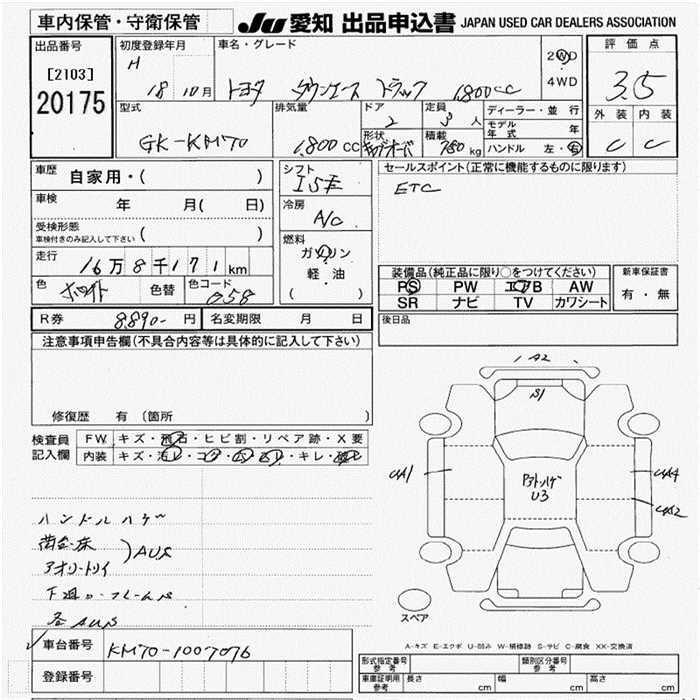 車内保管・守衛保管
JU 愛知 出品申込書 JAPAN USED CAR DEALERS ASSOCIATION
出品番号
[2103]
20175
初度登録年月
H 18 10月
車名・グレード
トヨタ タウンエース トラック 1.800cc
2WD
4WD
評価点
3.5
外装 内装
C C
型式
GK-KM70
排気量
1.800cc
ドア
2
定員
3人
形状
積載
750kg
ディーラー・並行
モデル年式 年
ハンドル 左・右
車歴
自家用・( )
車検
年 月( 日)
受検形態
車検付きのみ記入して下さい ( )
走行
16万8千171km
色
ホワイト
色替
色コード
058
シフト
I5F
冷房
A/C
燃料
ガソリン
軽・油
( )
セールスポイント(正常に機能するものに限ります)
ETC
装備品(純正品に限り○をつけてください)
PS PW エアB AW
SR ナビ TV カワシート
新車保証書
有・無
後日品
R券 8.890- 円
名変期限 月 日
注意事項申告欄(不具合内容等は具体的に記入して下さい)
修復歴 有 (箇所 )
検査員記入欄
FW キズ・飛石・ヒビ割・リペア跡・X要
内装 キズ・汚レ・コゲ・穴・スレ・キレ・破レ
ハンドルハゲ
荷台床
アオリトリイ
AUS
下廻り・フレーム
各AUS
A2
S1
UA1
アオトハゲ
U3
UA4
UA2
スペア
車台番号
KM70-1007076
登録番号
A-キズ E-エクボ U-凹み W-補修跡 S-サビ C-腐食 XX-交換済
形式指定番号 参考
類別区分番号 参考
車庫証明用 参考
長さ cm
幅 cm
高さ cm